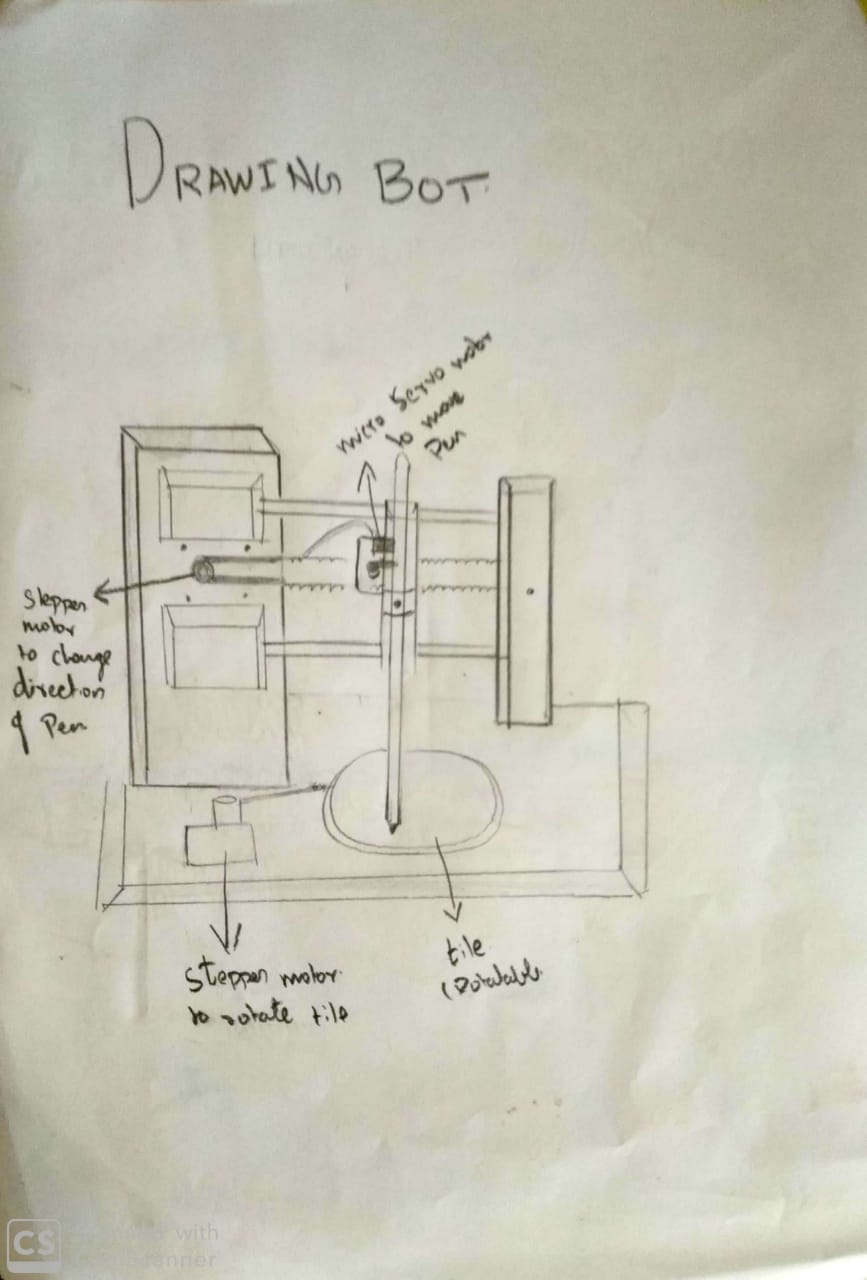 DRAWING BOT
micro Servo motor
to move
Pen
Stepper
motor
to change
direction
of Pen
Stepper motor
to rotate tile
tile
(Rotatable
CS
with
Scanner